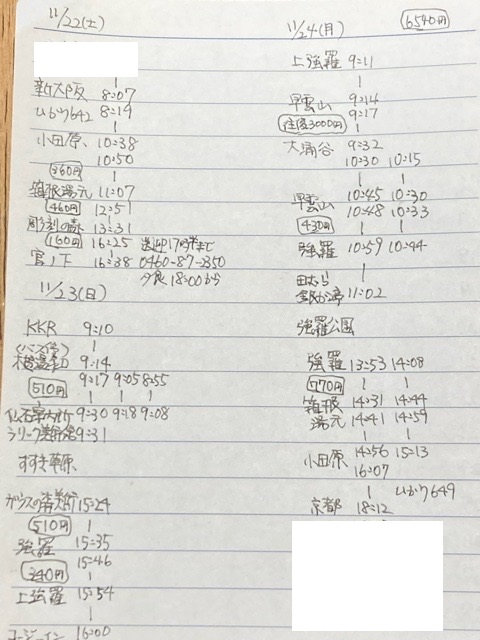 11/22(土)
新大阪 8:07
ひかり642 8:14
小田原 10:38
10:50
360円
箱根湯元 11:07
460円 12:51
彫刻の森 13:31
160円 16:25 送迎17時半まで
宮ノ下 16:38 0460-87-2350
夕食18:00から
11/23(日)
KKR 9:10
(バス停)
9:14
510円 9:17 9:05 8:55
9:30 9:18 9:08
ラリック美術館 9:31
すすき草原
ガラスの森美術館 15:24
510円
強羅 15:35
15:46
340円
上強羅 15:54
コージーイン 16:00
11/24(月) 6540円
上強羅 9:11
早雲山 9:16
9:17
往復3000円
大涌谷 9:32
10:30 10:15
早雲山 10:45 10:30
10:48 10:33
430円
強羅 10:59 10:44
田むら
銀かつ亭 11:02
強羅公園
強羅 13:53 14:08
770円
箱根 14:31 14:44
湯元 14:41 14:59
小田原 14:56 15:13
16:07
ひかり649
京都 18:12